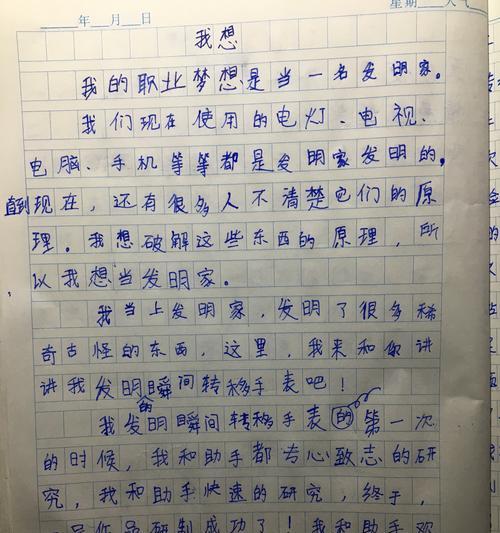 年 月 日
星期 天气
我想
我的职业梦想是当一名发明家。
我们现在使用的电灯、电视、
电脑、手机等等都是发明家发明的。
直到现在，还有很多人不清楚它们的原
理。我想破解这些东西的原理，所
以我想当发明家。
我当上发明家，发明了很多稀
奇古怪的东西，这里，我来和你讲
讲我发明瞬间转移手表吧！
的
我发明瞬间转移手表的第一次
的时候，我和助手都专心致志的研
究，我和助手快速的研究，终于，
品研制成功了！我和助手观